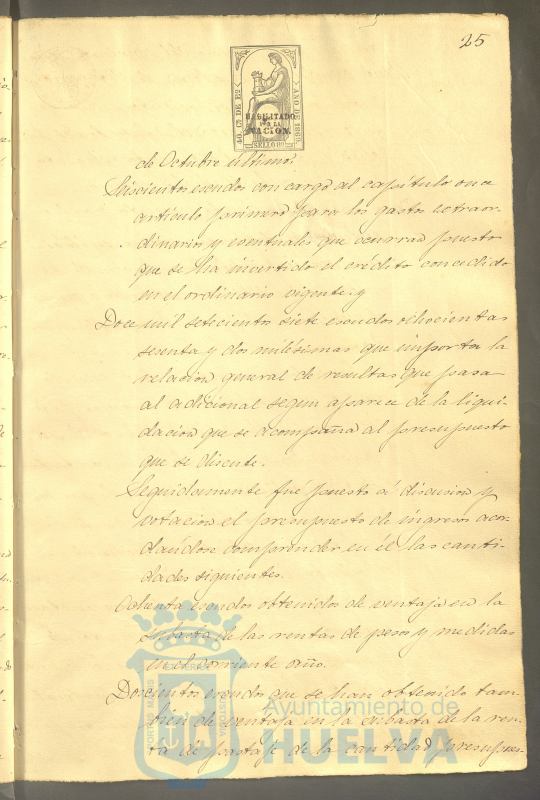 25
40. Cs. DE Eº.
AÑO DE 1869.
HABILITADO
POR LA
NACION.
SELLO 8º
de Octubre último.
Seiscientos escudos con cargo al capítulo once
artículo primero para los gastos estraor-
dinarios y eventuales que ocurran puesto
que se ha invertido el crédito concedido
en el ordinario vigente. y
Doce mil setecientos siete escudos ochocientas
sesenta y dos milésimas que importa la
relacion general de resultas que pasa
al adicional segun aparece de la liqui-
dacion que se acompaña al presupuesto
que se discute.
Seguidamente fué puesto á discusion y
votacion el presupuesto de ingresos acor-
dándose comprender en él las canti-
dades siguientes.
Ochenta escudos obtenidos de ventaja en la
subasta de las rentas de pesos y medidas
en el corriente año.
Doscientos escudos que se han obtenido tam-
bien de ventaja en la subasta de la ren-
ta de pastaje de la cantidad presupues-
PORTUS MARIS
ET TERRÆ
CUSTODIA
Ayuntamiento de
HUELVA